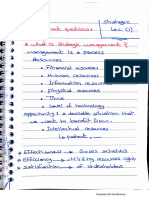 Strategic
Lec. (1)
questions:
what is strategic management?
management is a process
Resources
- Financial resources
- Human resources
- Information resources
- Physical resources
- Time
- Level of technology
opportunity: a desirable situation
want to benefit from
- Intellectual resources
patent
Effectiveness → Goals achieved
Efficiency → utilizing resources right
satisfaction of stakeholders